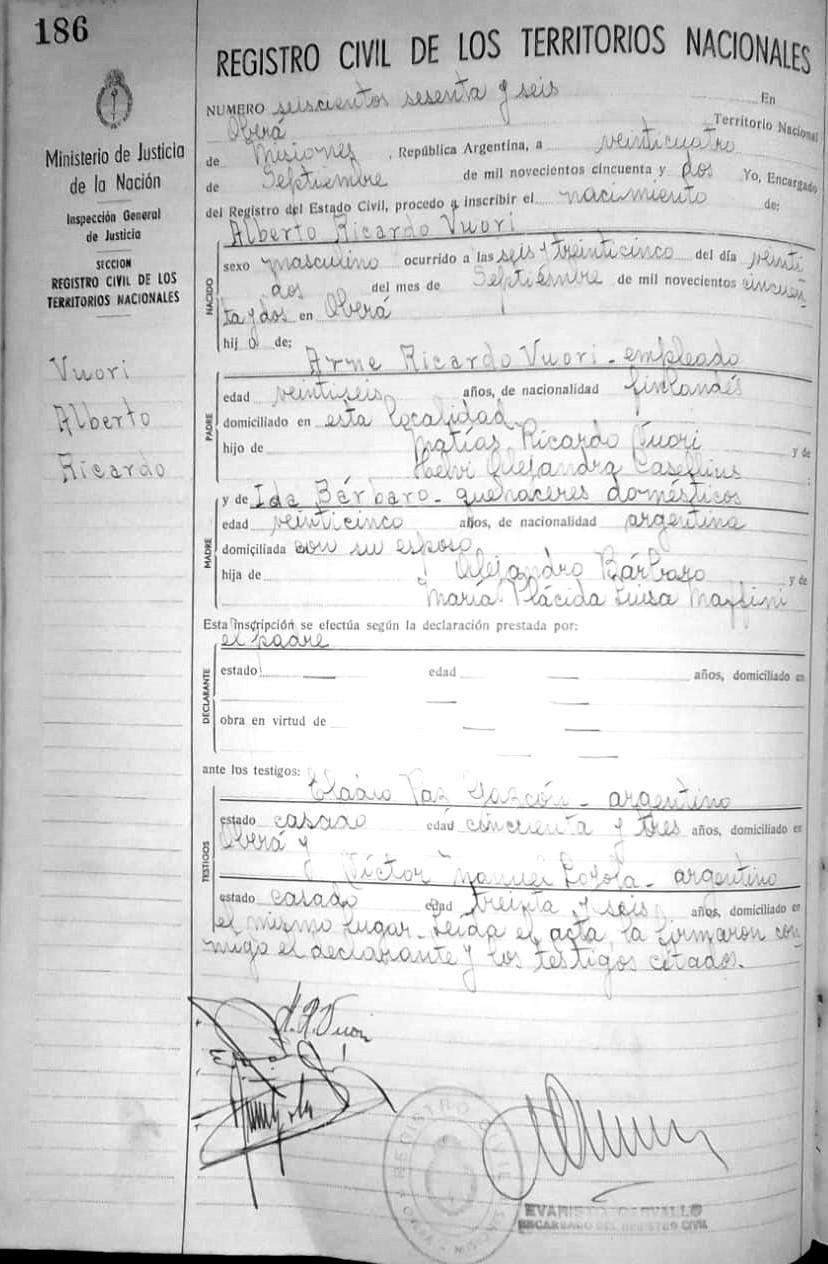 186
REGISTRO CIVIL DE LOS TERRITORIOS NACIONALES
Ministerio de Justicia
de la Nación
Inspección General
de Justicia
SECCION
REGISTRO CIVIL DE LOS
TERRITORIOS NACIONALES
Vuori
Alberto
Ricardo
NUMERO seiscientos sesenta y seis En
Oberá Territorio Nacional
de Misiones, República Argentina, a veinticuatro
de Septiembre de mil novecientos cincuenta y dos Yo, Encargado
del Registro del Estado Civil, procedo a inscribir el nacimiento de:
Alberto Ricardo Vuori
NACIDO
sexo masculino ocurrido a las seis y treinticinco del día veinti
dos del mes de Septiembre de mil novecientos cincuen
ta y dos en Oberá
hijo de;
Arne Ricardo Vuori - empleado
PADRE
edad veintiseis años, de nacionalidad finlandés
domiciliado en esta localidad
hijo de Matías Ricardo Vuori y de
Helvi Alejandra Casellius :
y de Ida Bárbaro - quehaceres domésticos
MADRE
edad veinticinco años, de nacionalidad argentina
domiciliada con su esposo
hija de Alejandro Bárbaro y de
María Plácida Luisa Maffini
Esta inscripción se efectúa según la declaración prestada por:
el padre
DECLARANTE
estado — edad — años, domiciliado en
obra en virtud de — —
ante los testigos:
Eladio Vaz Garzón - argentino
TESTIGOS
estado casado edad cincuenta y tres años, domiciliado en
Oberá y
Víctor Manuel Loyola - argentino
estado casado edad treinta y seis años, domiciliado en
el mismo lugar - Leída el acta, la firmaron con
migo el declarante y los testigos citados.
A. R. Vuori
REGISTRO CIVIL
OBERA - MISIONES
EVARISTO CARVALLO
ENCARGADO DEL REGISTRO CIVIL